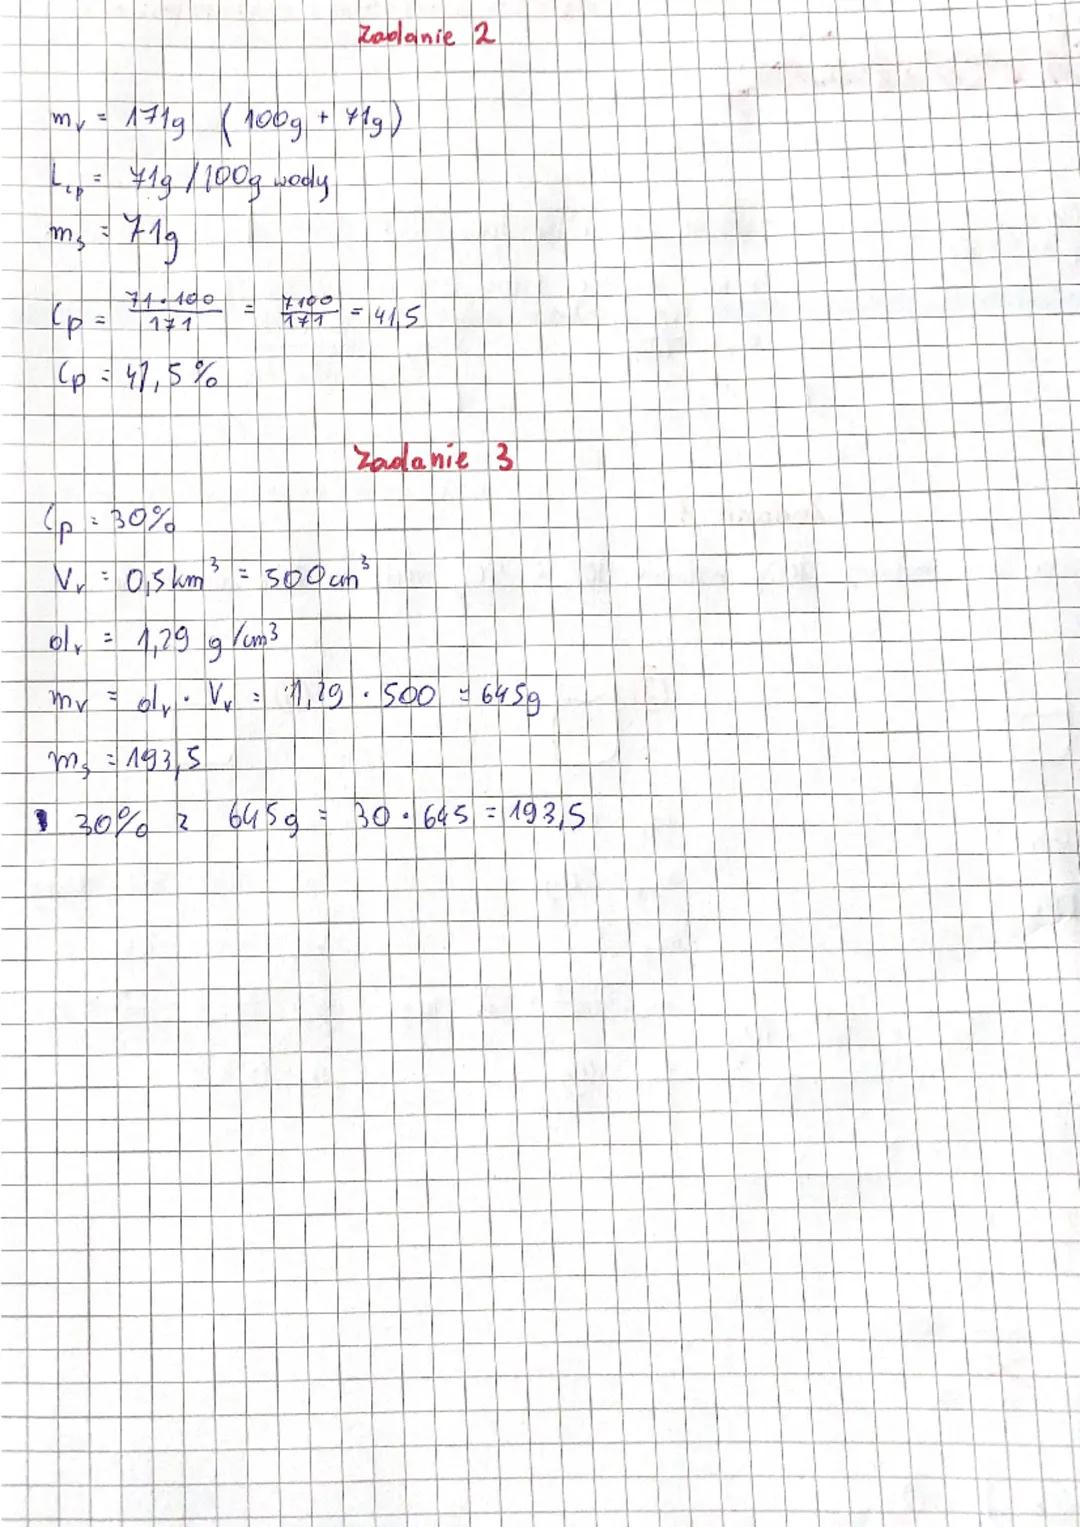 Zadanie 2
mᵣ = 171g (100g + 71g)
L = 71g /100g wody
mₛ = 71g
Cp = 71·100/171 = 7100/171 = 41,5
Cp = 41,5%
Zadanie 3
Cp = 30%
Vᵣ = 0,5 km³ = 500 cm³
dᵣ = 1,29 g/cm³
mᵣ = dᵣ · Vᵣ = 1,29 · 500 = 645g
mₛ = 193,5
30% z 645g = 30 · 645 = 193,5